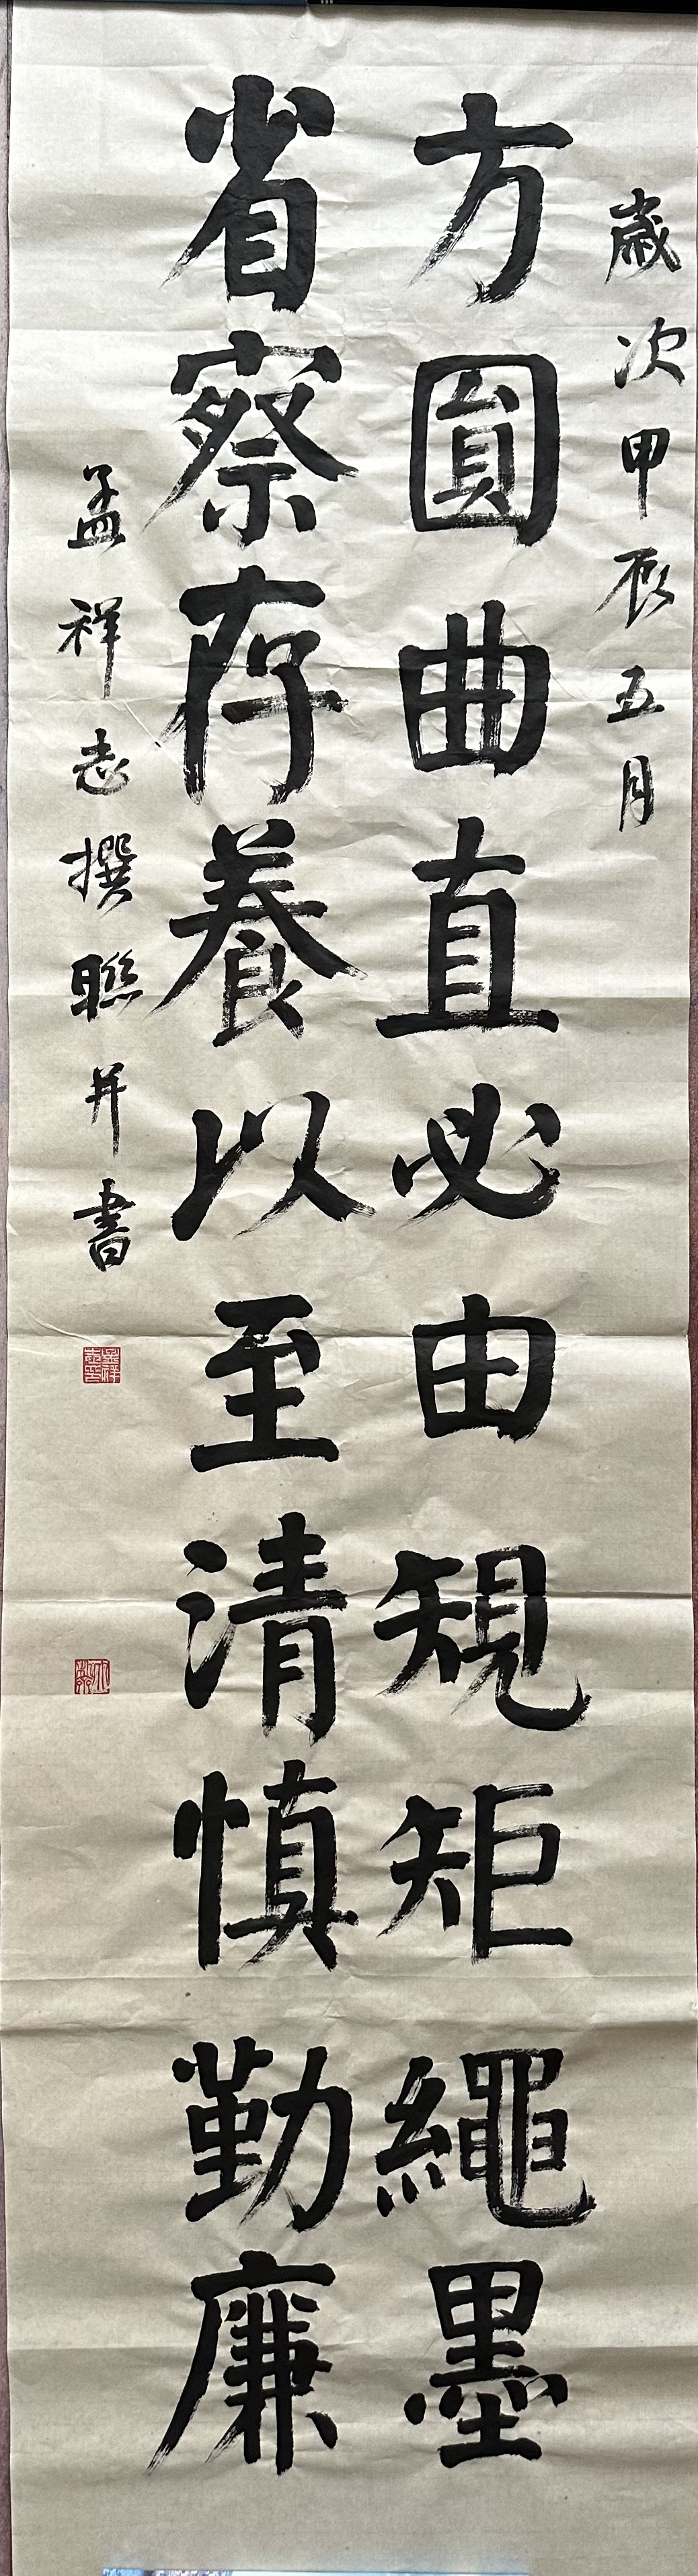 歲次甲辰五月
方圓曲直必由規矩繩墨
省察存養以至清慎勤廉
孟祥志撰聯并書